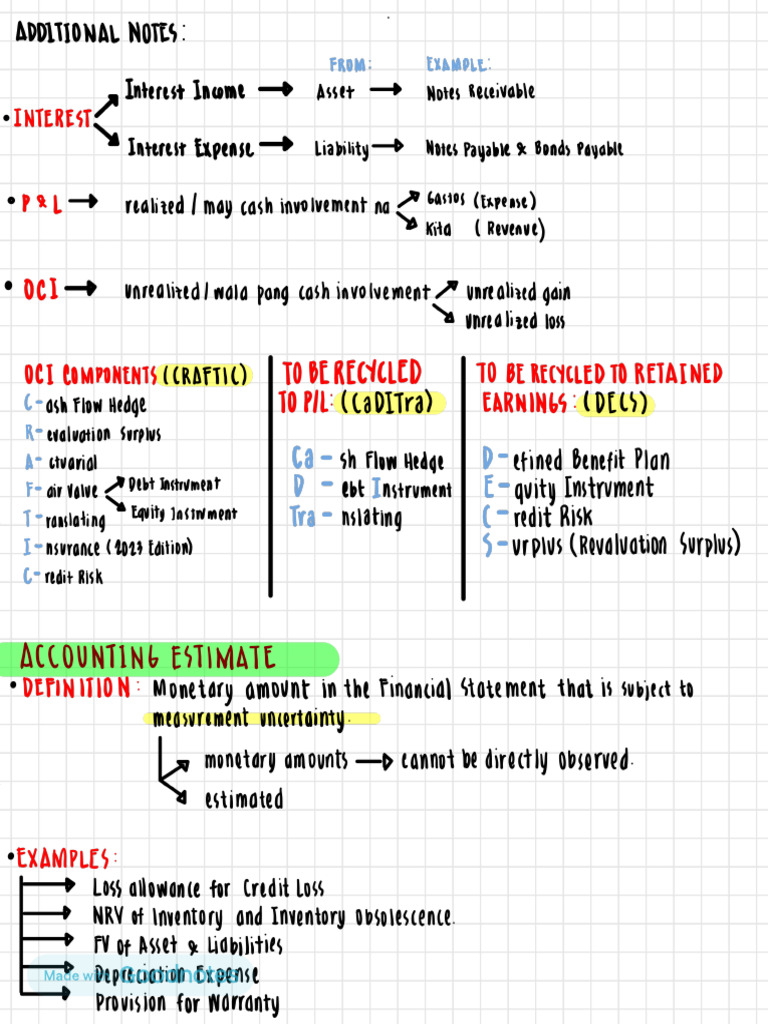 ADDITIONAL NOTES:
FROM: EXAMPLE:
• INTEREST
Interest Income → Asset → Notes Receivable
Interest Expense → Liability → Notes Payable & Bonds Payable
• P & L → realized / may cash involvement na
Gastos (Expense)
Kita (Revenue)
• OCI → unrealized / wala pang cash involvement
unrealized gain
unrealized loss
OCI COMPONENTS (CRAFTIC)
C - ash Flow Hedge
R - evaluation Surplus
A - ctuarial
F - air Value
Debt Instrument
Equity Instrument
T - ranslating
I - nsurance (2023 Edition)
C - redit Risk
TO BE RECYCLED
TO P/L: (CaDITra)
Ca - sh Flow Hedge
D - ebt Instrument
Tra - nslating
TO BE RECYCLED TO RETAINED
EARNINGS: (DECS)
D - efined Benefit Plan
E - quity Instrument
C - redit Risk
S - urplus (Revaluation Surplus)
ACCOUNTING ESTIMATE
• DEFINITION: Monetary amount in the Financial Statement that is subject to
measurement uncertainty.
monetary amounts → cannot be directly observed.
estimated
• EXAMPLES:
Loss allowance for Credit Loss
NRV of Inventory and Inventory Obsolescence.
FV of Asset & Liabilities
Depreciation Expense
Made with Goodnotes
Provision for Warranty